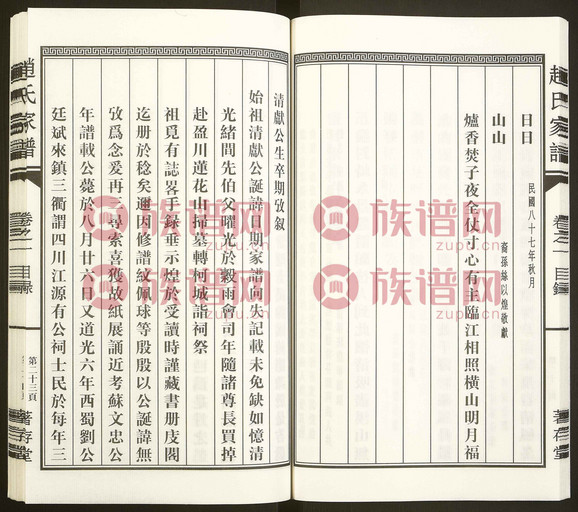 趙氏家譜
卷之一 目錄
著存堂
日日
民國八十七年秋月
裔孫絲以煌敬獻
山山
爐香焚子夜全仗寸心有主臨江相照橫山明月福
清獻公生卒期攷敘
始祖清獻公誕諱日期家譜向失記載未免缺如憶清
光緒間先伯父曜光於穀雨會司年隨諸尊長買掉
赴盈川蓮花山掃墓轉柯城詣祠祭
祖覓有誌畧手錄垂示煌於受讀時謹藏書册庋閣
迄册於稔矣邇因修譜紋佩球等殷殷以公誕諱無
攷爲念爰再三尋索喜獲故紙展誦近考蘇文忠公
年譜載公薨於八月廿六日又道光六年西蜀劉公
廷斌來鎮三衢謂四川江源有公祠士民於每年三
趙氏家譜
卷之一 目錄
第二十三頁
著存堂
族谱网
zupu.cn
族谱网
zupu.cn
族谱网
zupu.cn
族谱网
zupu.cn